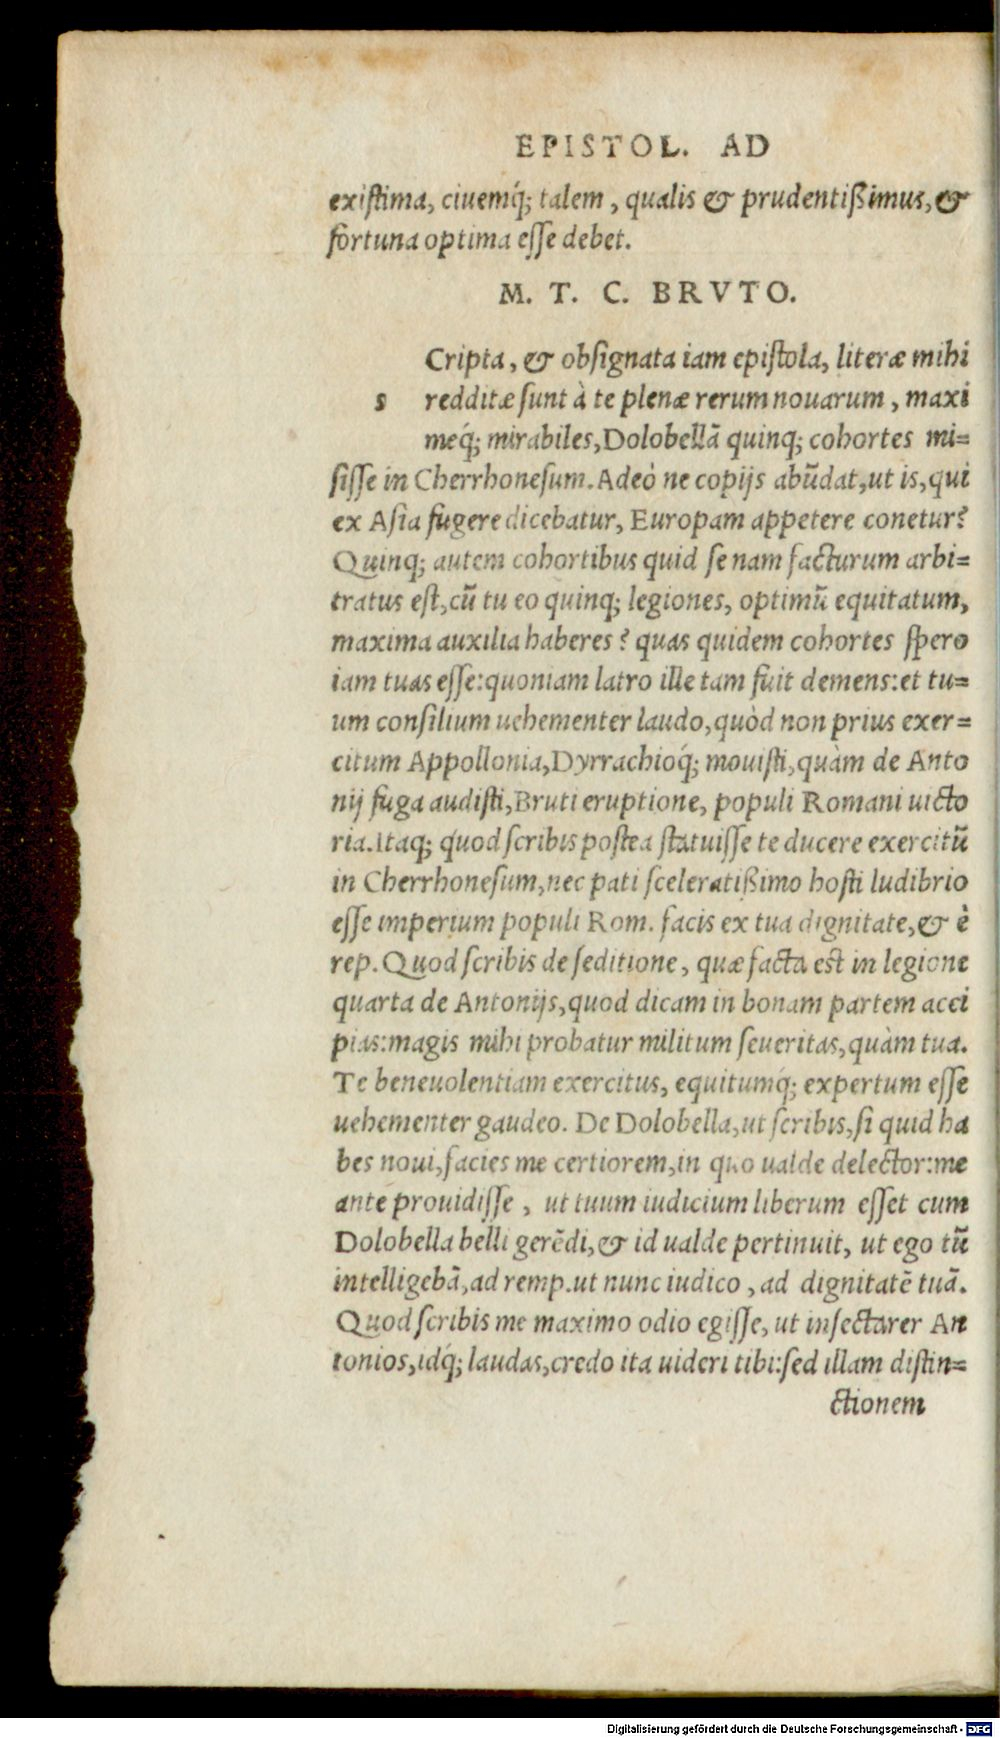 EPISTOL. AD
existima, ciuemq́; talem, qualis & prudentißimus, &
fortuna optima esse debet.
M. T. C. BRVTO.
Cripta, & obsignata iam epistola, literæ mihi
s redditæ sunt à te plenæ rerum nouarum, maxi
meq́; mirabiles, Dolobellā quinq; cohortes mi=
sisse in Cherrhonesum. Adeò ne copijs abūdat, ut is, qui
ex Asia fugere dicebatur, Europam appetere conetur?
Quinq; autem cohortibus quid se nam facturum arbi=
tratus est, cū tu eo quinq; legiones, optimū equitatum,
maxima auxilia haberes? quas quidem cohortes spero
iam tuas esse: quoniam latro ille tam fuit demens: et tu=
um consilium uehementer laudo, quòd non prius exer=
citum Appollonia, Dyrrachioq́; mouisti, quàm de Anto
nij fuga audisti, Bruti eruptione, populi Romani uicto
ria. Itaq; quod scribis postea statuisse te ducere exercitū
in Cherrhonesum, nec pati sceleratißimo hosti ludibrio
esse imperium populi Rom. facis ex tua dignitate, & è
rep. Quod scribis de seditione, quæ facta est in legione
quarta de Antonijs, quod dicam in bonam partem acci
pias: magis mihi probatur militum seueritas, quàm tua.
Te beneuolentiam exercitus, equitumq́; expertum esse
uehementer gaudeo. De Dolobella, ut scribis, si quid ha
bes noui, facies me certiorem, in quo ualde delector: me
ante prouidisse, ut tuum iudicium liberum esset cum
Dolobella belli gerēdi, & id ualde pertinuit, ut ego tū
intelligebā, ad remp. ut nunc iudico, ad dignitatē tuā.
Quod scribis me maximo odio egisse, ut insectarer An
tonios, idq́; laudas, credo ita uideri tibi: sed illam distin=
ctionem
Digitalisierung gefördert durch die Deutsche Forschungsgemeinschaft - DFG